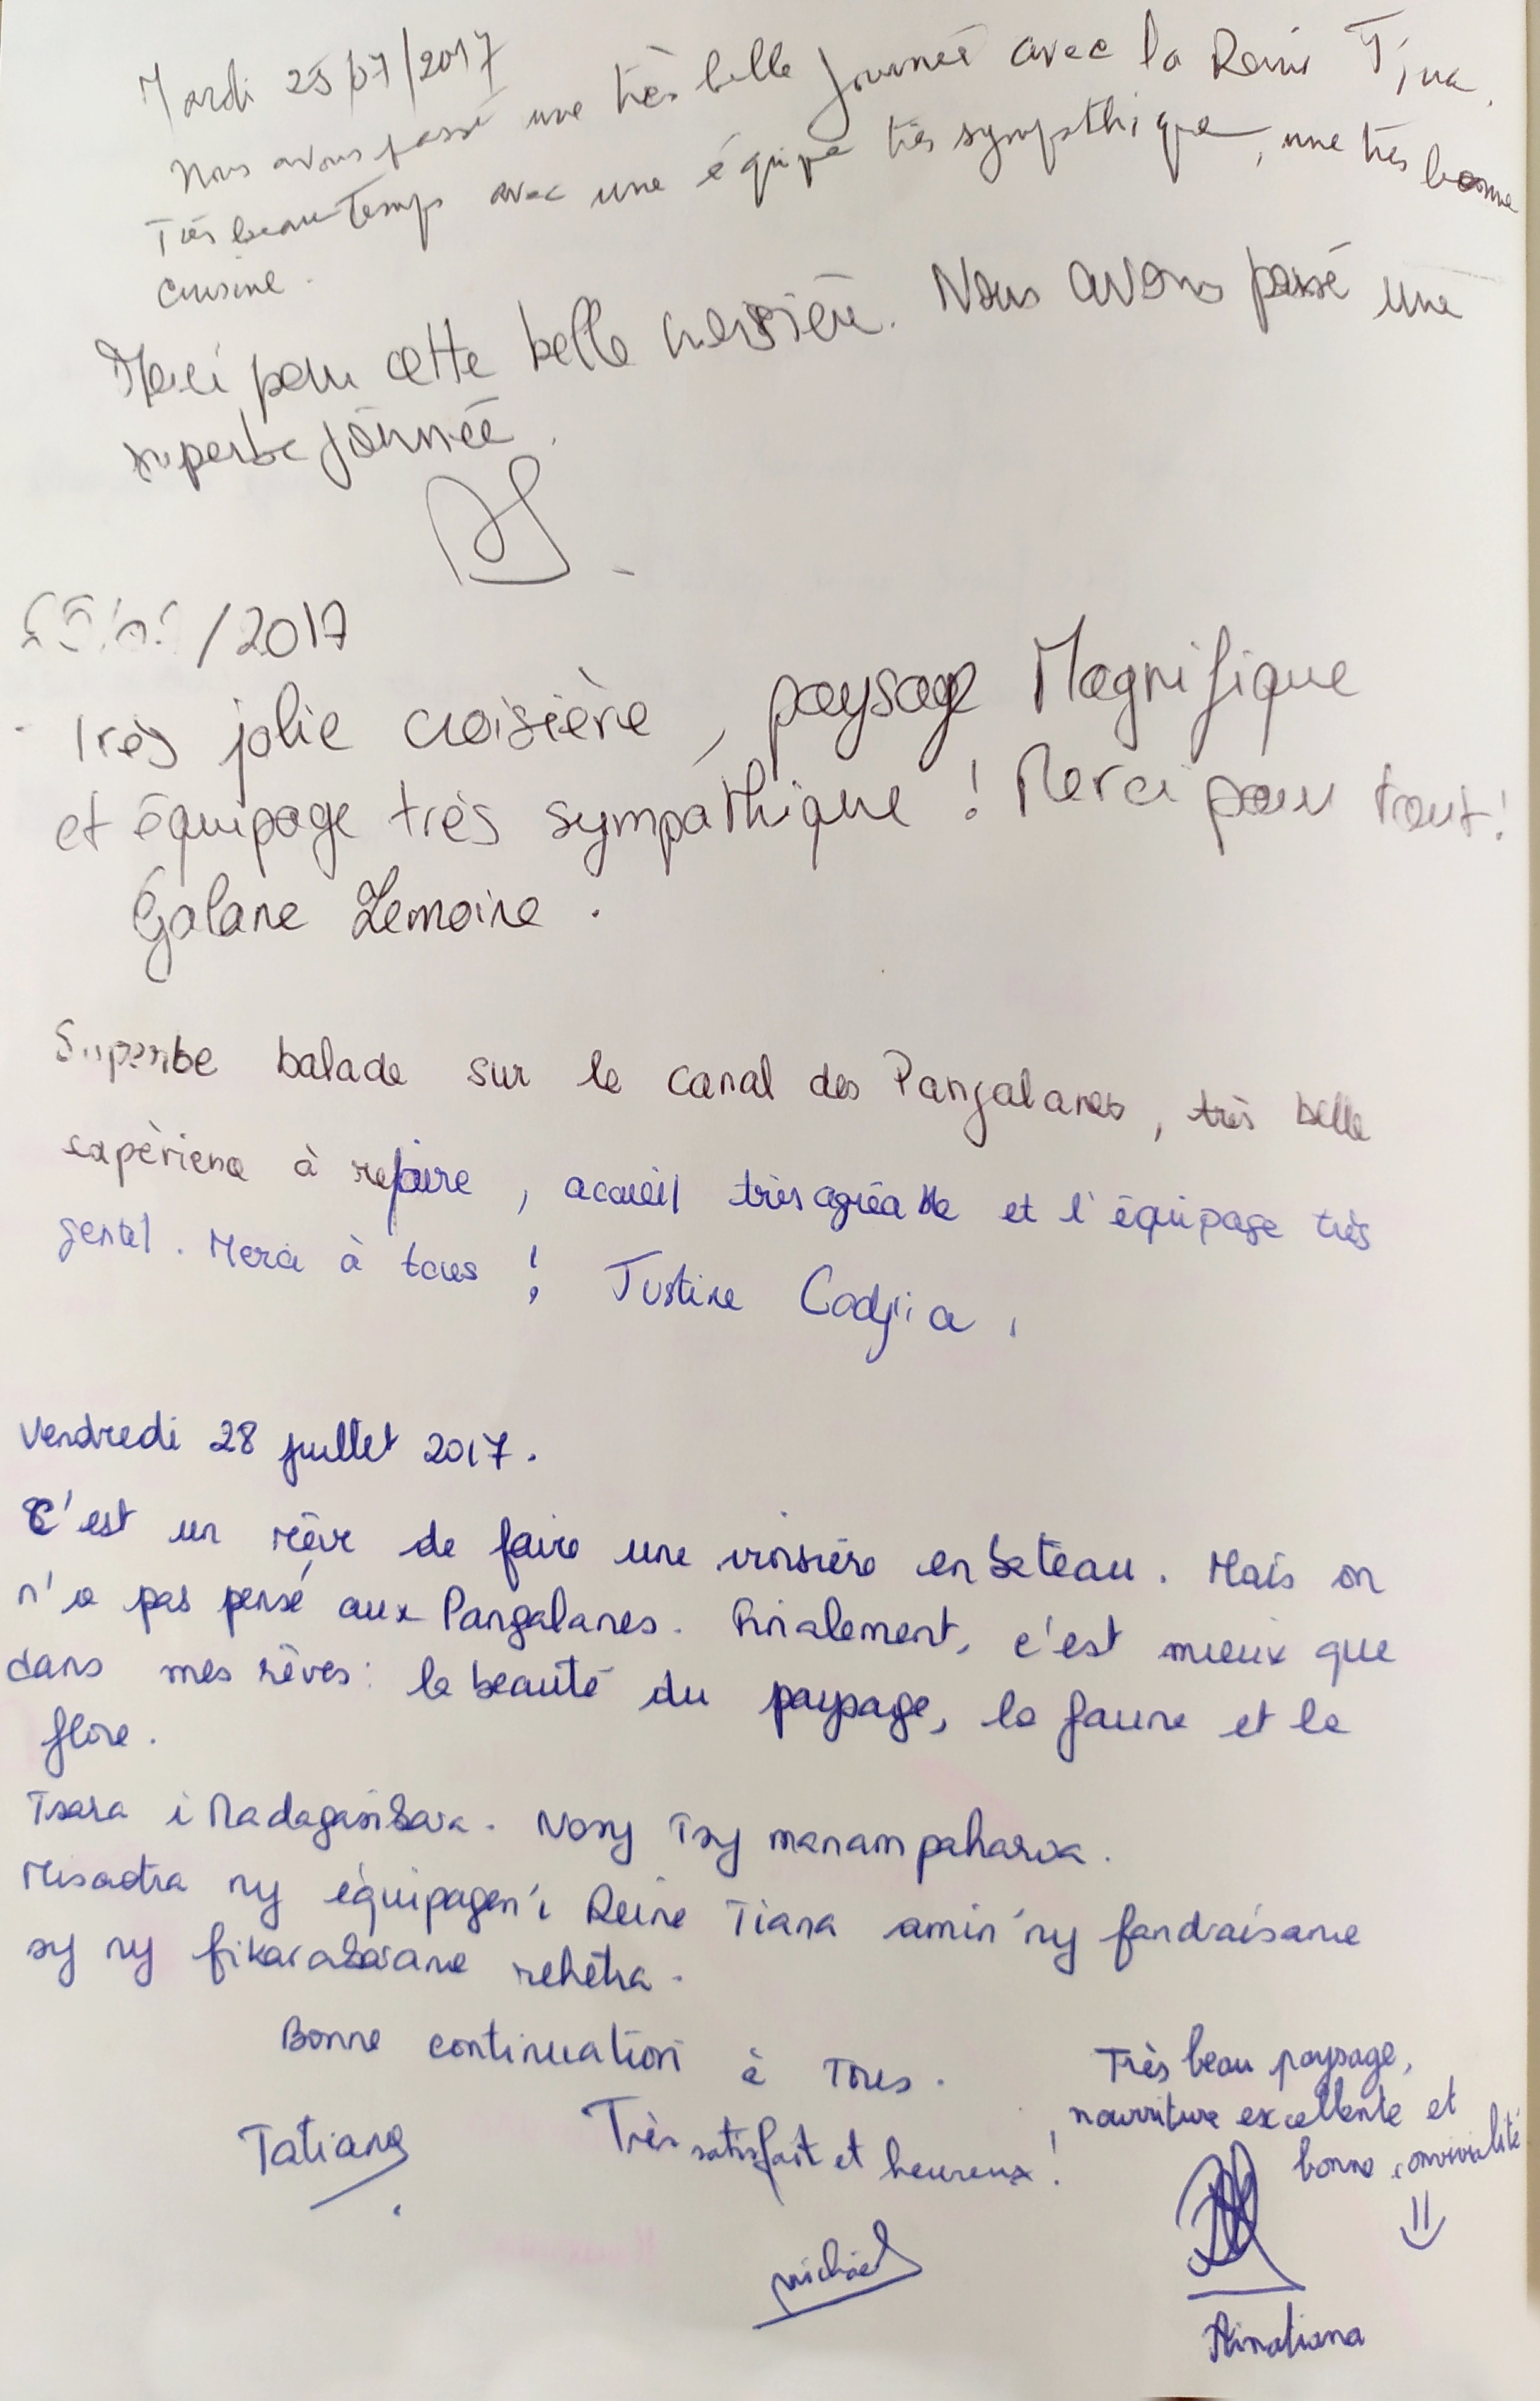 Mardi 25/07/2017
Nous avons passé une très belle journée avec la Reine Tina.
Très beau temps avec une équipe très sympthique, une très bonne
cuisine.
Merci pour cette belle croisière. Nous avons passé une
superbe journée.
/2017
Très jolie croisière, paysage Magnifique
et équipage très sympathique ! Merci pour tout !
Galane Lemoine.
Superbe balade sur le canal des Pangalanes, très belle
expèrience à refaire, acceuil très agréable et l'équipage très
gentil. Merci à tous ! Justine
Vendredi 28 juillet 2017.
C'est un rêve de faire une croisière en bateau. Mais on
n'a pas pensé aux Pangalanes. Finalement, c'est mieux que
dans mes rêves : la beauté du paysage, la faune et la
flore.
Tsara i Madagasikara. Nosy Tsy manam paharoa.
Misaotra ny équipagen'i Reine Tiana amin'ny fandraisana
sy ny fikarakarana rehetra.
Bonne continuation à Tous.
Tatiana
Très satisfait et heureux !
michael
Très beau paysage,
nourriture excellente et
bonne convivialité